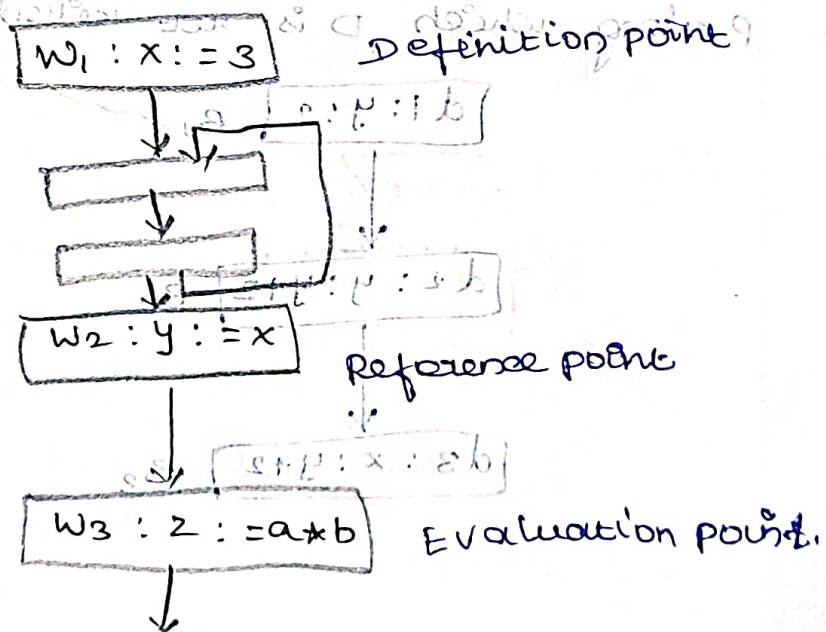 W1 : x : = 3
Definition point
W2 : y : = x
Reference point
W3 : Z : = a * b
Evaluation point.